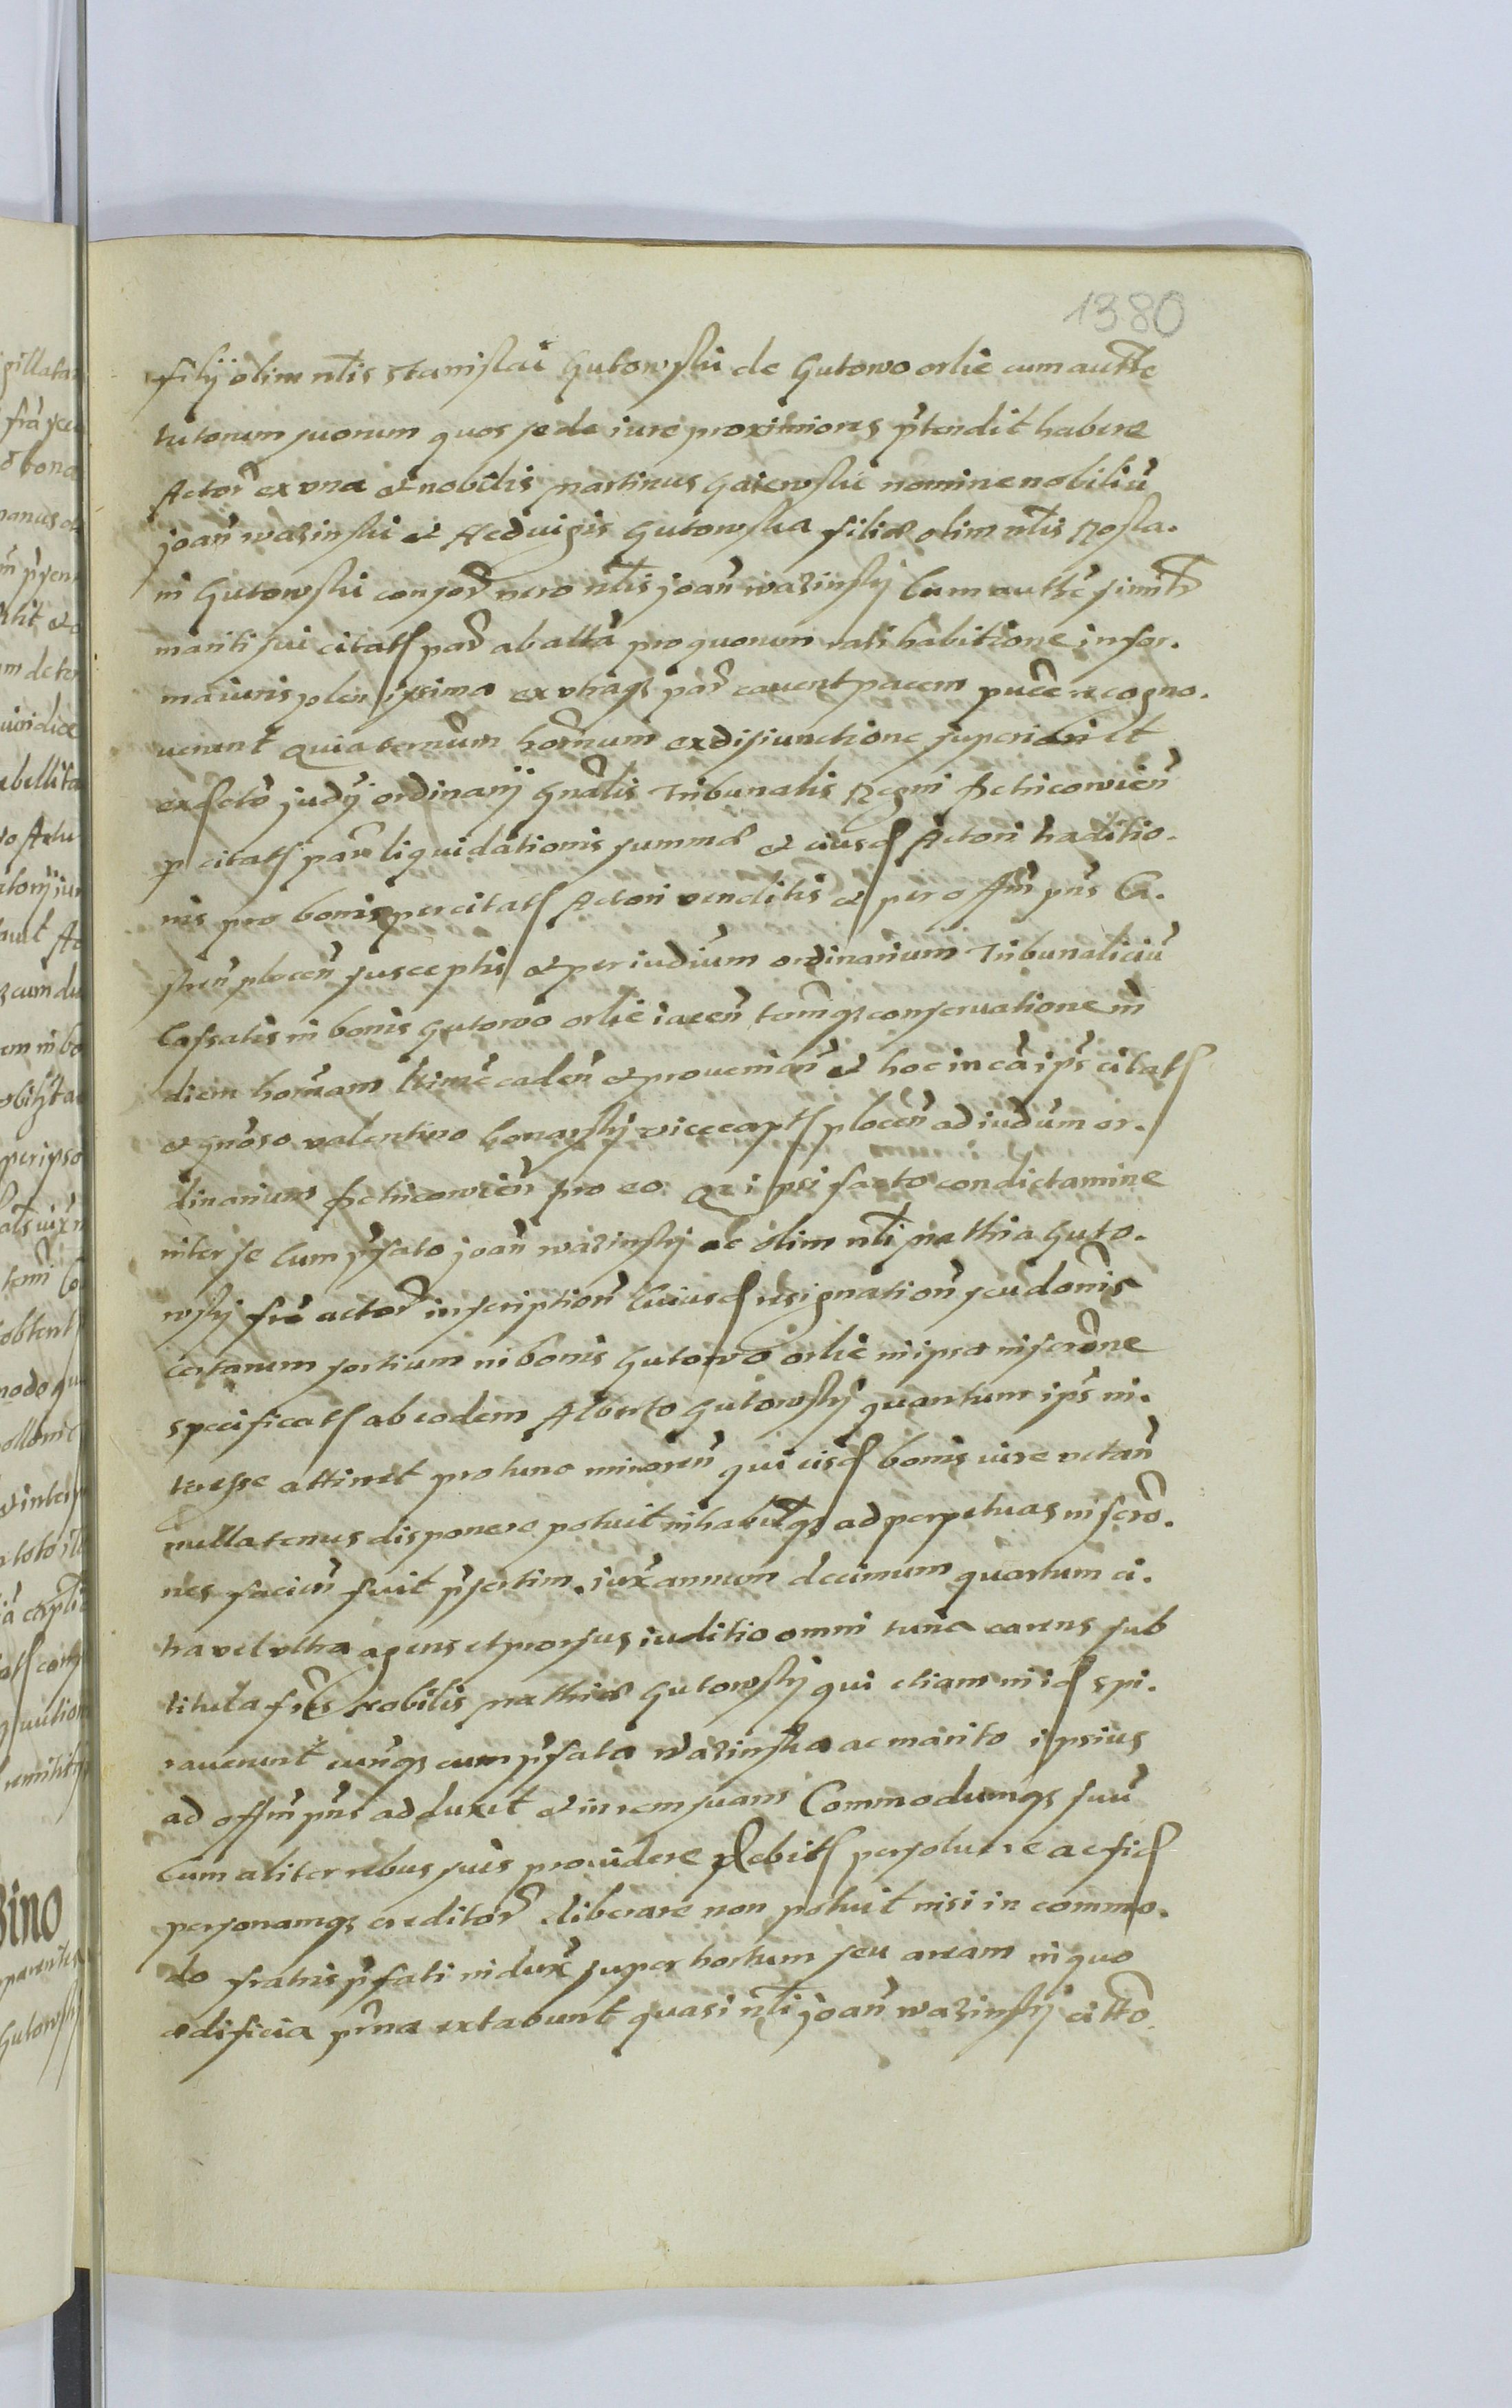 1380
filij olim nlis Stanislai Gutowski de Gutowo orlie cum authe
tutorum suorum quos se de iure proximiores pñtendit habere
Actor ex vna et nobilis Martinus Gaiewski nomine nobiliũ
Joañ Wazinski et Hedvigis Gutowska filiæ olim nlis
ni Gutowski consor vero nlis Joañ Wazinskij cum authe similr
mariti sui citat par ab altã pro quorum rati habitione in for.
ma iuris plenissima ex vtraqz par cauent pacem pucẽ recogno.
uerunt quia termũm hornum ex disiunctione superiori et
ex judij ordinarij gñalis Tribunalis Regni Petricowień
p citat par liquidationis summæ et eiusd Actori traditio.
nis pro bonis per citat Actori venditis et per offm pns Ca.
streñ ploceñ susceptis et per iudiũm ordinarium Tribunaliciũ
Cassatis in bonis Gutowo orlie iaceñ conseruatione in
diem hornam cadeñ et proueniañ et hoc in cã ips citat
et gnoso Valentino vicecapt ploceñ ad iudũm or.
dinarium Petricowień pro eo Qz ipsi facto condictamine
inter se cum pfato Joañ Wazinskij ac olim nli Mathia Guto.
wskij frẽ actor inscriptioñ Cuiusd resignatioñ seu donõis
certarum sortium in bonis Gutowo orlie in ipsa inscrõne
specificat ab eodem Alberto Gutowskij quantum ips in.
teresse attinet pro tunc minoreñ qui eisd bonis iure vetañ
nullatenus disponere potuit inhabilqz ad perpetuas inscrõ.
nes facień fuit pñsertim iux annum decimum quartum ci.
tra vel vltra agens et prorsus iuditio omni tunc carens sub
tituta frĩs Nobilis Mathiæ Gutowskij qui etiam in id spi.
rauerunt eumqz cum pfata Wazinska ac marito ipsius
ad offm pns adduxit et in rem suam Commodumqz suũ
Cum aliter rebus suis prouidere debit persoluere ac fid
personamqz creditor liberare non potuit nisi in commo.
do fratris pfati indux super hortum seu aream in quo
ædificia pñna extabunt quasi nli Joañ Wazinskij citto